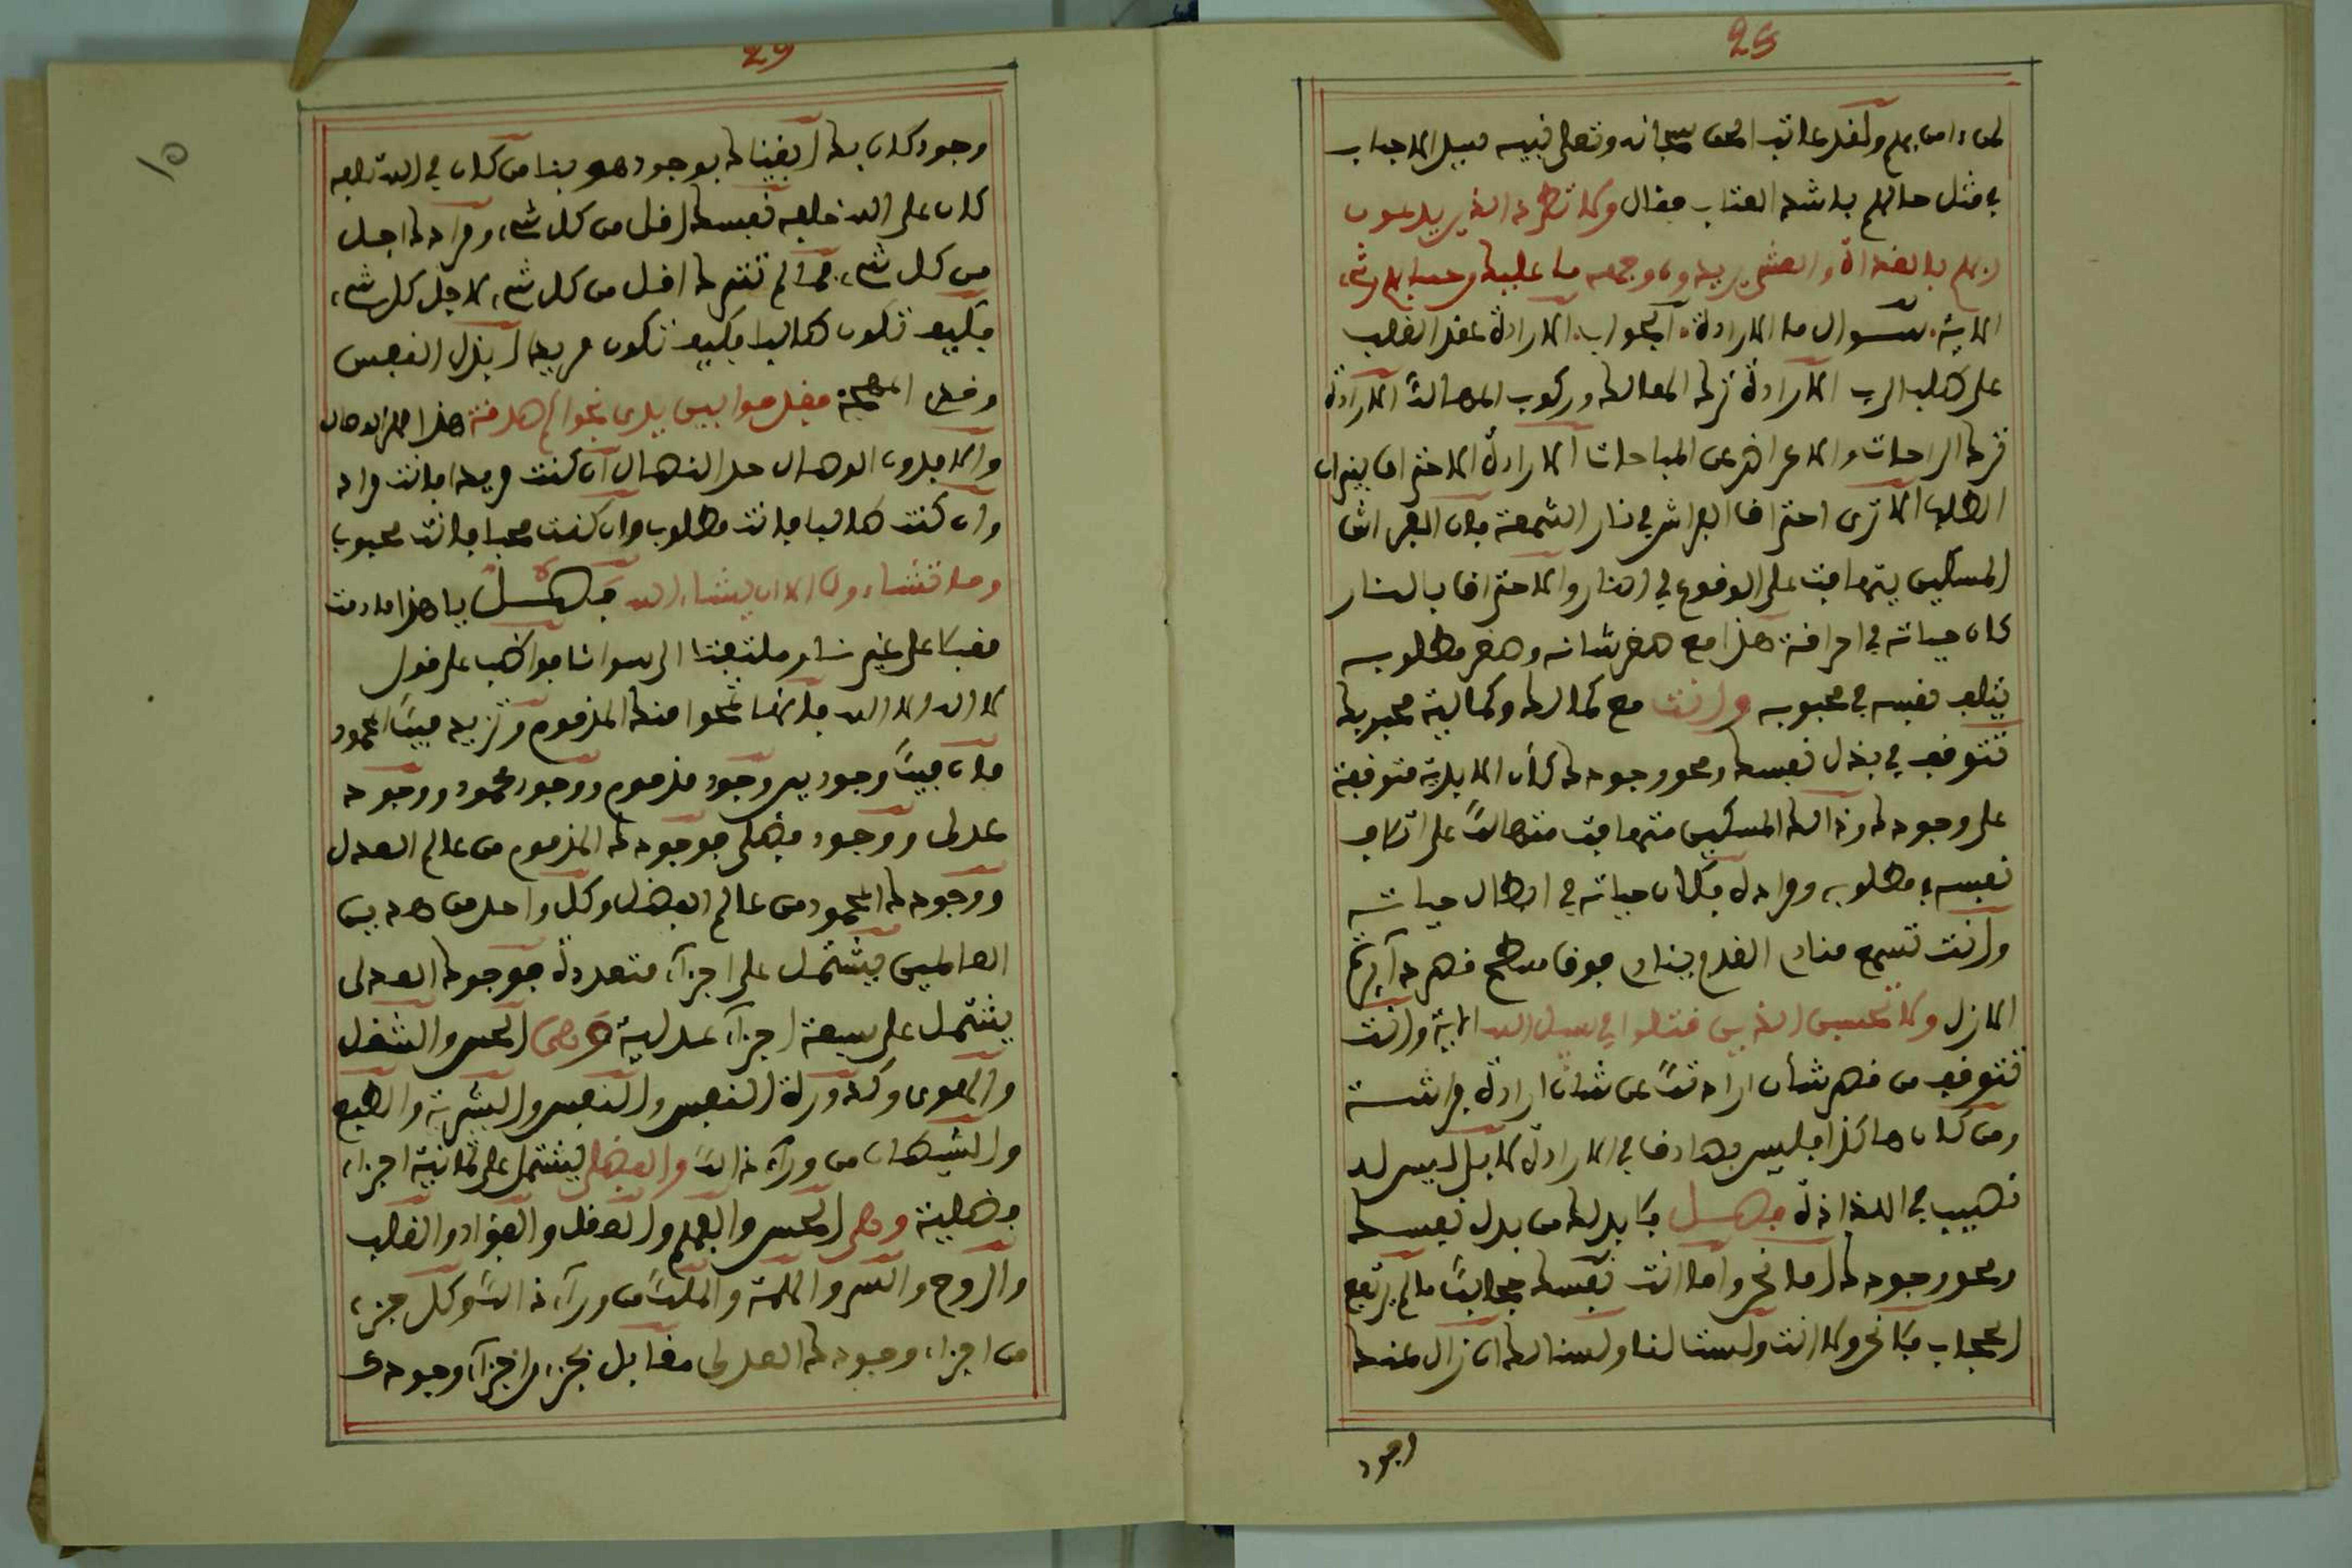 25
ربهم ولقد عاتب الحق سبحانه وتعلى نبيه سيد الاحباب
في مثل حالهم باشد العتاب فقال ولا تطرد الذين يدعون
ربهم بالغداة والعشي يريدون وجهه ما عليك من حسابهم من شيء
الاية سوال ما الارادة الجواب الارادة عقد القلب
على طلب الرب الارادة ترك المعالك وركوب المهالك الارادة
ترك الراحات والاعراض عن المباحات الارادة الاحتراق بنيران
الطلب الا ترى احتراق الفراش في نار الشمعة فان الفراش
المسكين يتهافت على الوقوع في النار والاحتراق بالنار
كان حياته في احراقه هذا مع صغر شانه وصغر مطلوبه
يتلف نفسه في محبوبه وانت مع كمالك وكمالية محبوبك
تتوقف في بذل نفسك ومحو وجودك كان الابدية متوقفة
على وجودك وذالك المسكين متهافت متهالك على اتلاف
نفسه في مطلوبه ومراده فكان حياته في ابطال حياته
وانت تسمع منادي القدم ينادي فوق سطح
الازل ولا تحسبن الذين قتلوا في سبيل الله الاية وانت
تتوقف من قصر شان ارادتك عن شان ارادة فراشة
ومن كان هاكذا فليس بصادق في الارادة لا بل ليس له
نصيب في اللذاذة فصل فلا بد لك من بذل نفسك
ومحو وجودك اما نحن واما انت نفسك حجابك ما لم يرتفع
الحجاب فلا نحن ولا انت ولست لنا ولسنا لك ان زال عنك
وجود
29
10
وجود كان بك ابقيناك بوجود هو بنا من كان في الله تلفه
كان على الله خلفه نفسك اقل من كل شيء ومرادك اجل
من كل شيء فما لم تترك اقل من كل شيء لاجل كل شيء
فكيف تكون طالبا فكيف تكون مريدا ابذل النفس
وخذ المهجة فقدموا بين يدي نجواكم صدقة هذا
والا فدون الوصال حد النصال ان كنت مريدا فانت مراد
وان كنت طالبا فانت مطلوب وان كنت محبا فانت محبوب
وما تشاءون الا ان يشاء الله فصل يا هذا ما دمت
مقبلا على غيرنا وملتفتا الى سوانا فواظب على قول
لا اله الا الله فانها تمحوا منك المذموم وتزيد فيك المحمود
فان فيك وجودين وجود مذموم ووجود محمود ووجود
عدلى ووجود فضلى فوجودك المذموم من عالم العدل
ووجودك المحمود من عالم الفضل وكل واحد من هذين
العالمين يشتمل على اجزاء متعددة فوجودك العدلى
يشتمل على سبعة اجزاء عدلية وهي الحس والشغل
والهوى وكدورة النفس والنفس والبشرية والطبع
والشيطان من وراء ذالك والفضلى يشتمل على ثمانية اجزاء
فضلية وهي الحس والفهم والعقل والفؤاد والقلب
والروح والسر والهمة والملك من وراء ذالك وكل جزء
من اجزاء وجودك العدلى مقابل بجزء من اجزاء وجودك